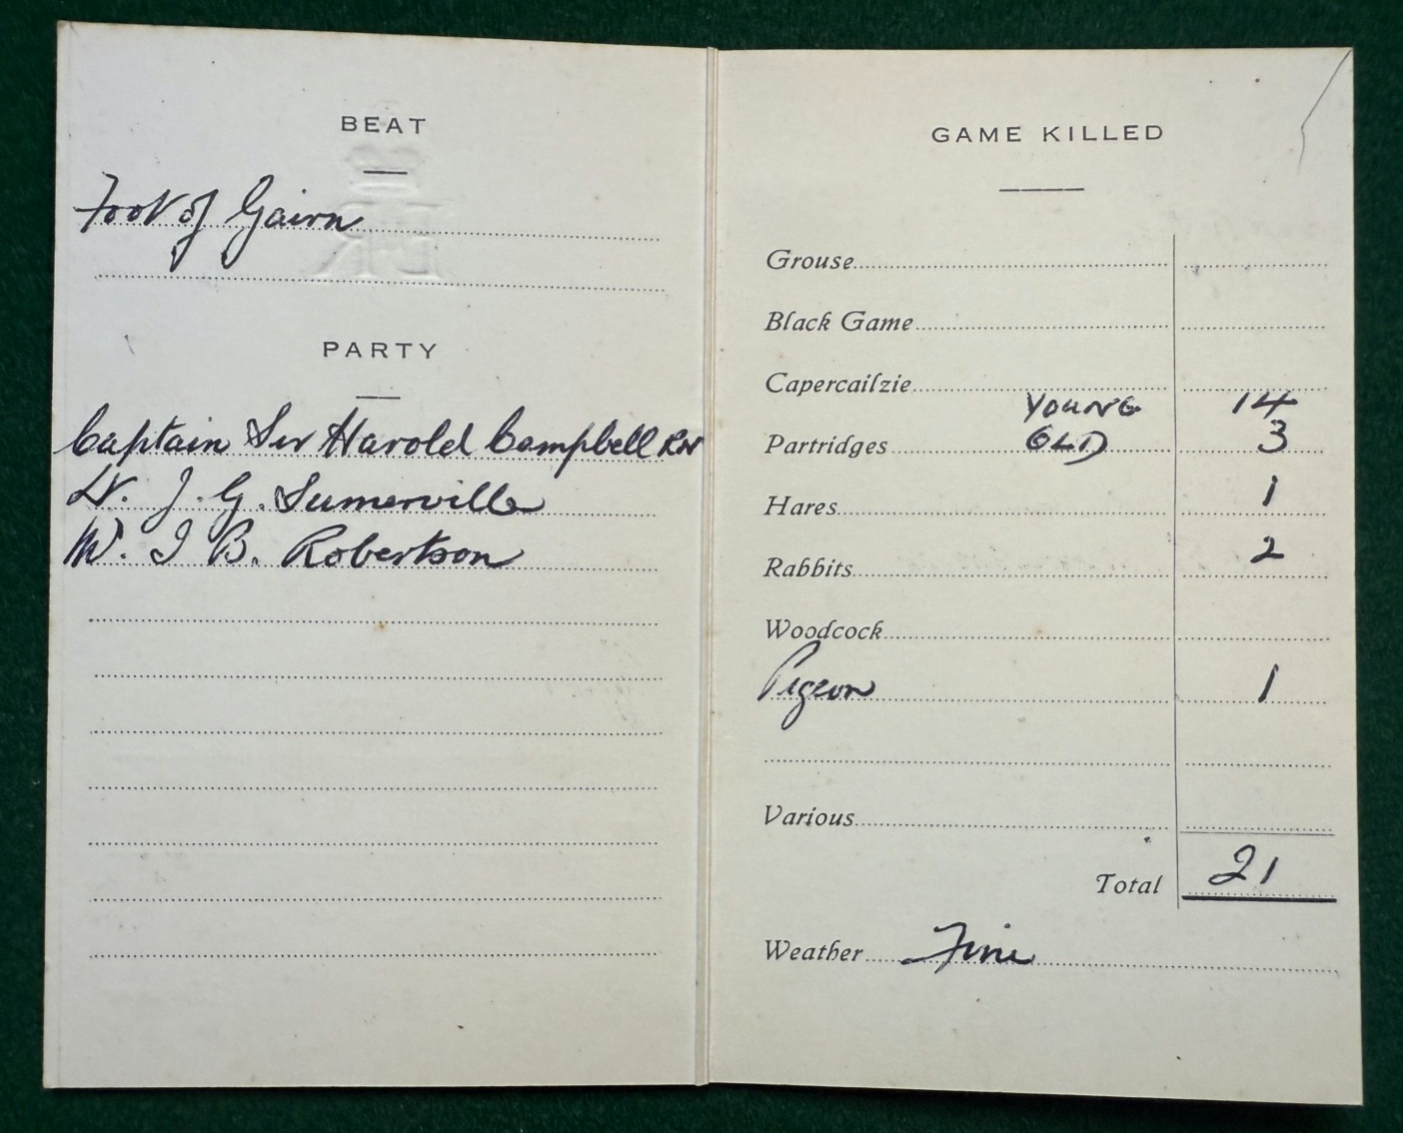 BEAT
Foot of Gairn
PARTY
Captain Sir Harold Campbell RN
Lt. J. G. Sumerville
W. I B. Robertson
GAME KILLED
Grouse
Black Game
Capercailzie
YOUNG 14
Partridges OLD 3
Hares 1
Rabbits 2
Woodcock
Pigeon 1
Various
Total 21
Weather Fine